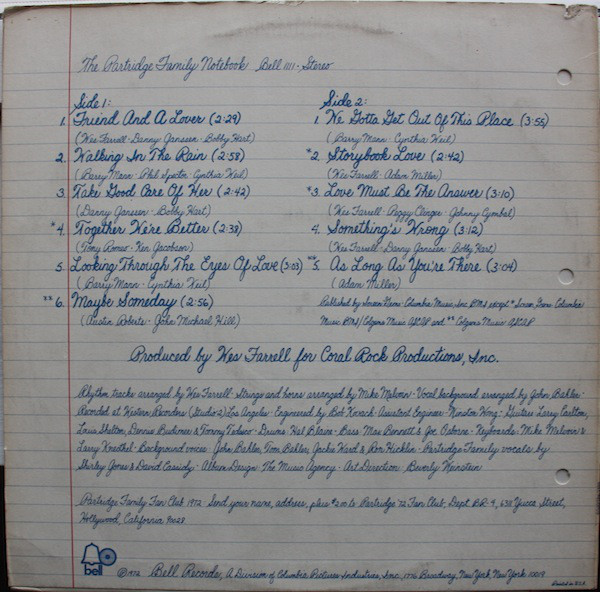 The Partridge Family Notebook Bell 1111 - Stereo
Side 1:
1. Friend And A Lover (2:29)
(Wes Farrell - Danny Janssen - Bobby Hart)
2. Walking In The Rain (2:58)
(Barry Mann - Phil Spector - Cynthia Weil)
3. Take Good Care Of Her (2:42)
(Danny Janssen - Bobby Hart)
*4. Together We're Better (2:38)
(Tony Romeo - Ken Jacobson)
5. Looking Through The Eyes Of Love (3:03)
(Barry Mann - Cynthia Weil)
**6. Maybe Someday (2:56)
(Austin Roberts - John Michael Hill)
Side 2:
1. We Gotta Get Out Of This Place (3:55)
(Barry Mann - Cynthia Weil)
*2. Storybook Love (2:42)
(Wes Farrell - Adam Miller)
*3. Love Must Be The Answer (3:10)
(Wes Farrell - Peggy Clinger - Johnny Cymbal)
4. Something's Wrong (3:12)
(Wes Farrell - Danny Janssen - Bobby Hart)
**5. As Long As You're There (3:04)
(Adam Miller)
Published by Screen Gems - Columbia Music, Inc. BMI except * Screen Gems Columbia
Music BMI/Colgems Music ASCAP and ** Colgems Music ASCAP
Produced by Wes Farrell for Coral Rock Productions, Inc.
Rhythm tracks arranged by Wes Farrell - Strings and horns arranged by Mike Melvoin - Vocal background arranged by John Bahler
Recorded at Western Recorders (Studio 2) Los Angeles - Engineered by Bob Kovach - Assistant Engineer - Winston Wong - Guitars Larry Carlton,
Louis Shelton, Dennis Budimir & Tommy Tedesco - Drums Hal Blaine - Bass Max Bennett & Joe Osborn - Keyboards - Mike Melvoin &
Larry Knechtel - Background voices John Bahler, Tom Bahler, Jackie Ward & Ron Hicklin - Partridge Family vocals by
Shirley Jones & David Cassidy - Album Design The Music Agency - Art Direction Beverly Weinstein
Partridge Family Fan Club 1972 - Send your name, address, plus $2.00 to Partridge '72 Fan Club, Dept. BR-4, 6311 Yucca Street,
Hollywood, California 90028
bell
©1972 Bell Records, A Division of Columbia Pictures Industries, Inc., 1776 Broadway, New York, New York 10019